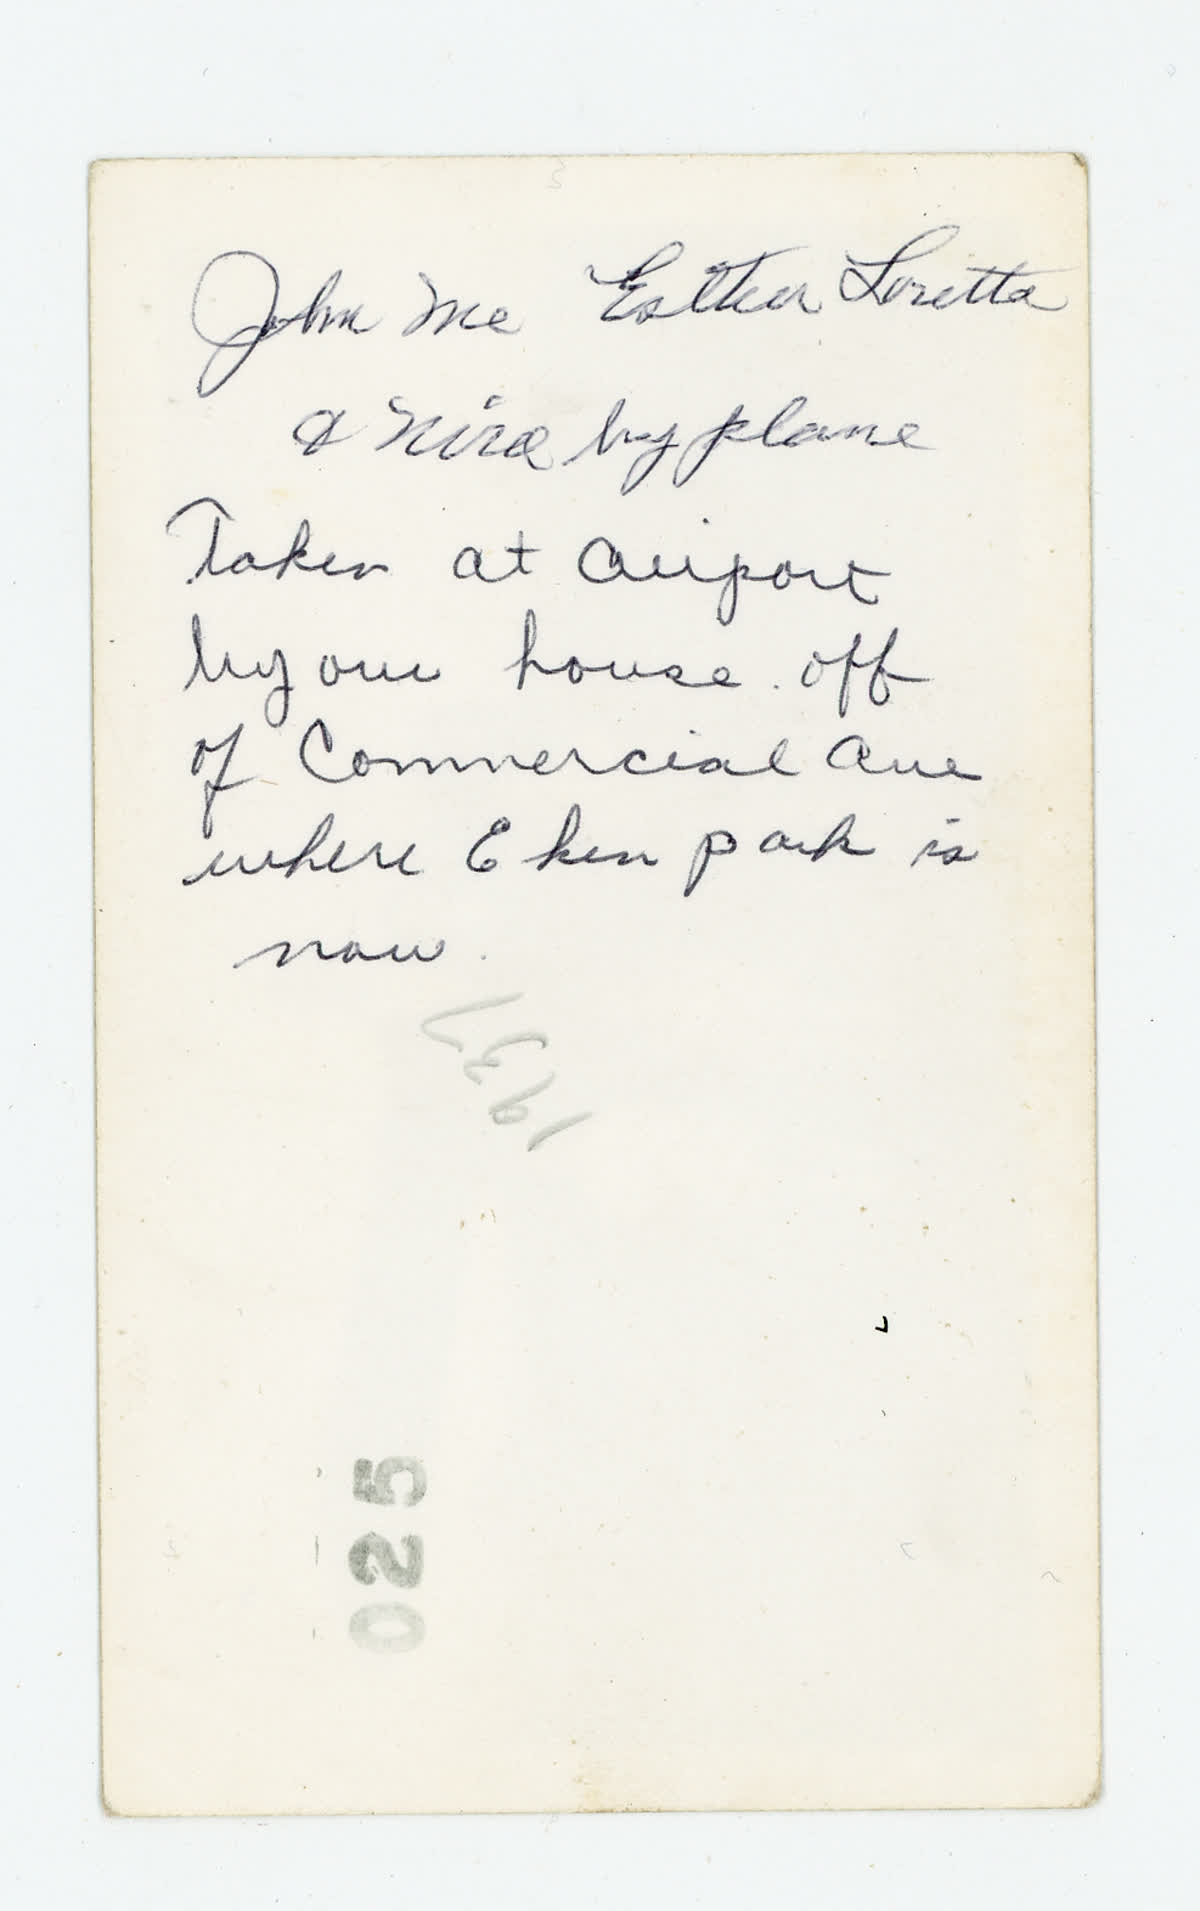 John Me Esther Loretta
& Nira by plane
Taken at Airport
by our house. off
of Commercial Ave
where Eken park is
now.
1937
025